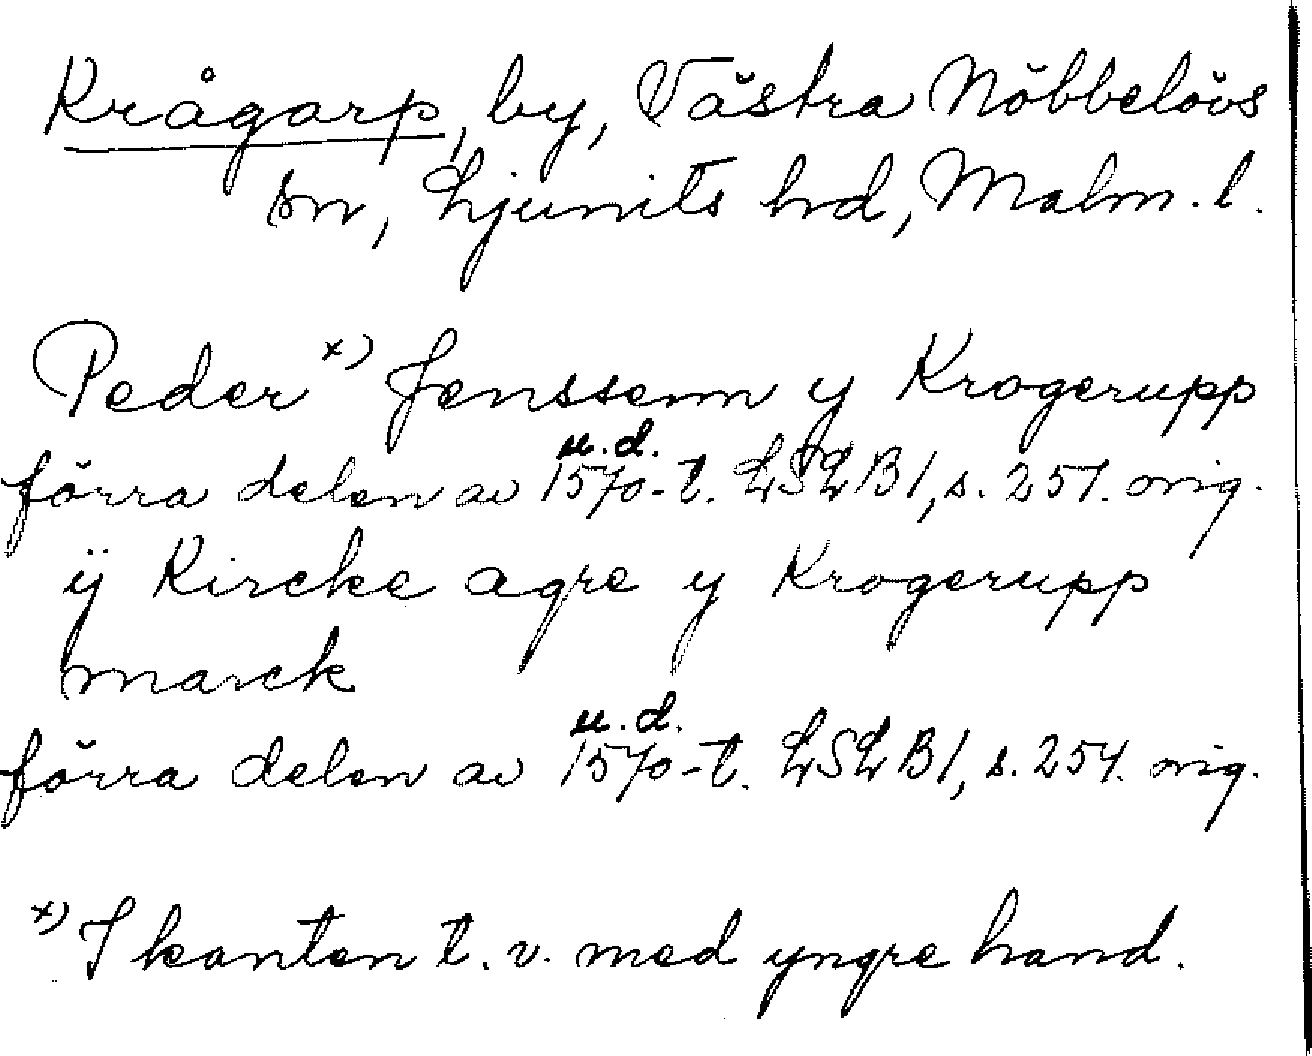 Krågarp, by, Västra Nöbbelövs
sn, Ljunits hrd, Malm. l.
Peder x) Jenssenn y Krogerupp
u.d.
förra delen av 1570-t. LSLB1, s. 251. orig.
ÿ Kircke agre y Krogerupp
marck
u.d.
förra delen av 1570-t. LSLB1, s. 251. orig.
x) I kanten t. v. med yngre hand.